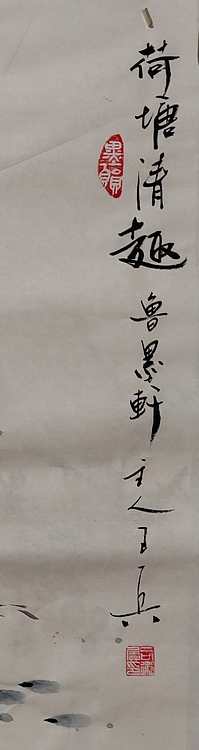 荷塘清趣
鲁墨軒主人王兵